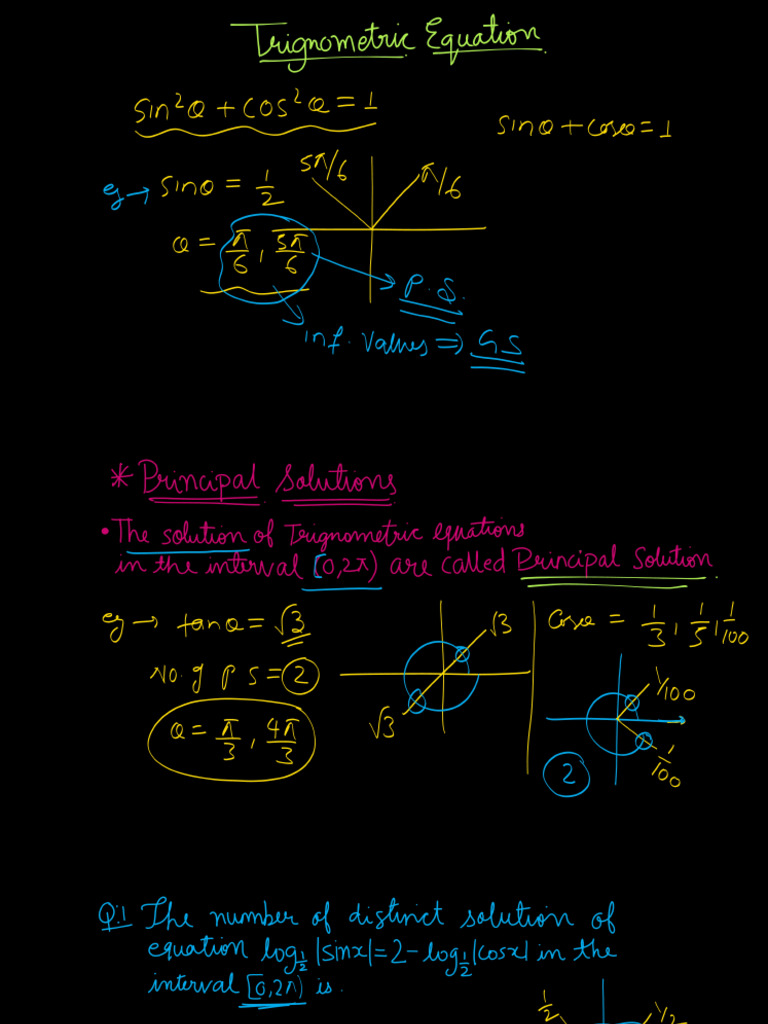 Trignometric Equation
sin²θ + cos²θ = 1
sinθ + cosθ = 1
eg → sinθ = 1/2
5π/6
π/6
θ = π/6, 5π/6
P.S.
inf. values ⇒ G.S
* Principal Solutions
• The solution of Trignometric equations
in the interval [0,2π) are called Principal Solution.
eg → tanθ = √3
√3
cosθ = 1/3, 1/5, 1/100
No. of P S = 2
1/100
θ = π/3, 4π/3
√3
1/100
2
Q.1 The number of distinct solution of
equation log_{1/2}|sinx| = 2 - log_{1/2}|cosx| in the
interval [0,2π) is.
1/2
1/2